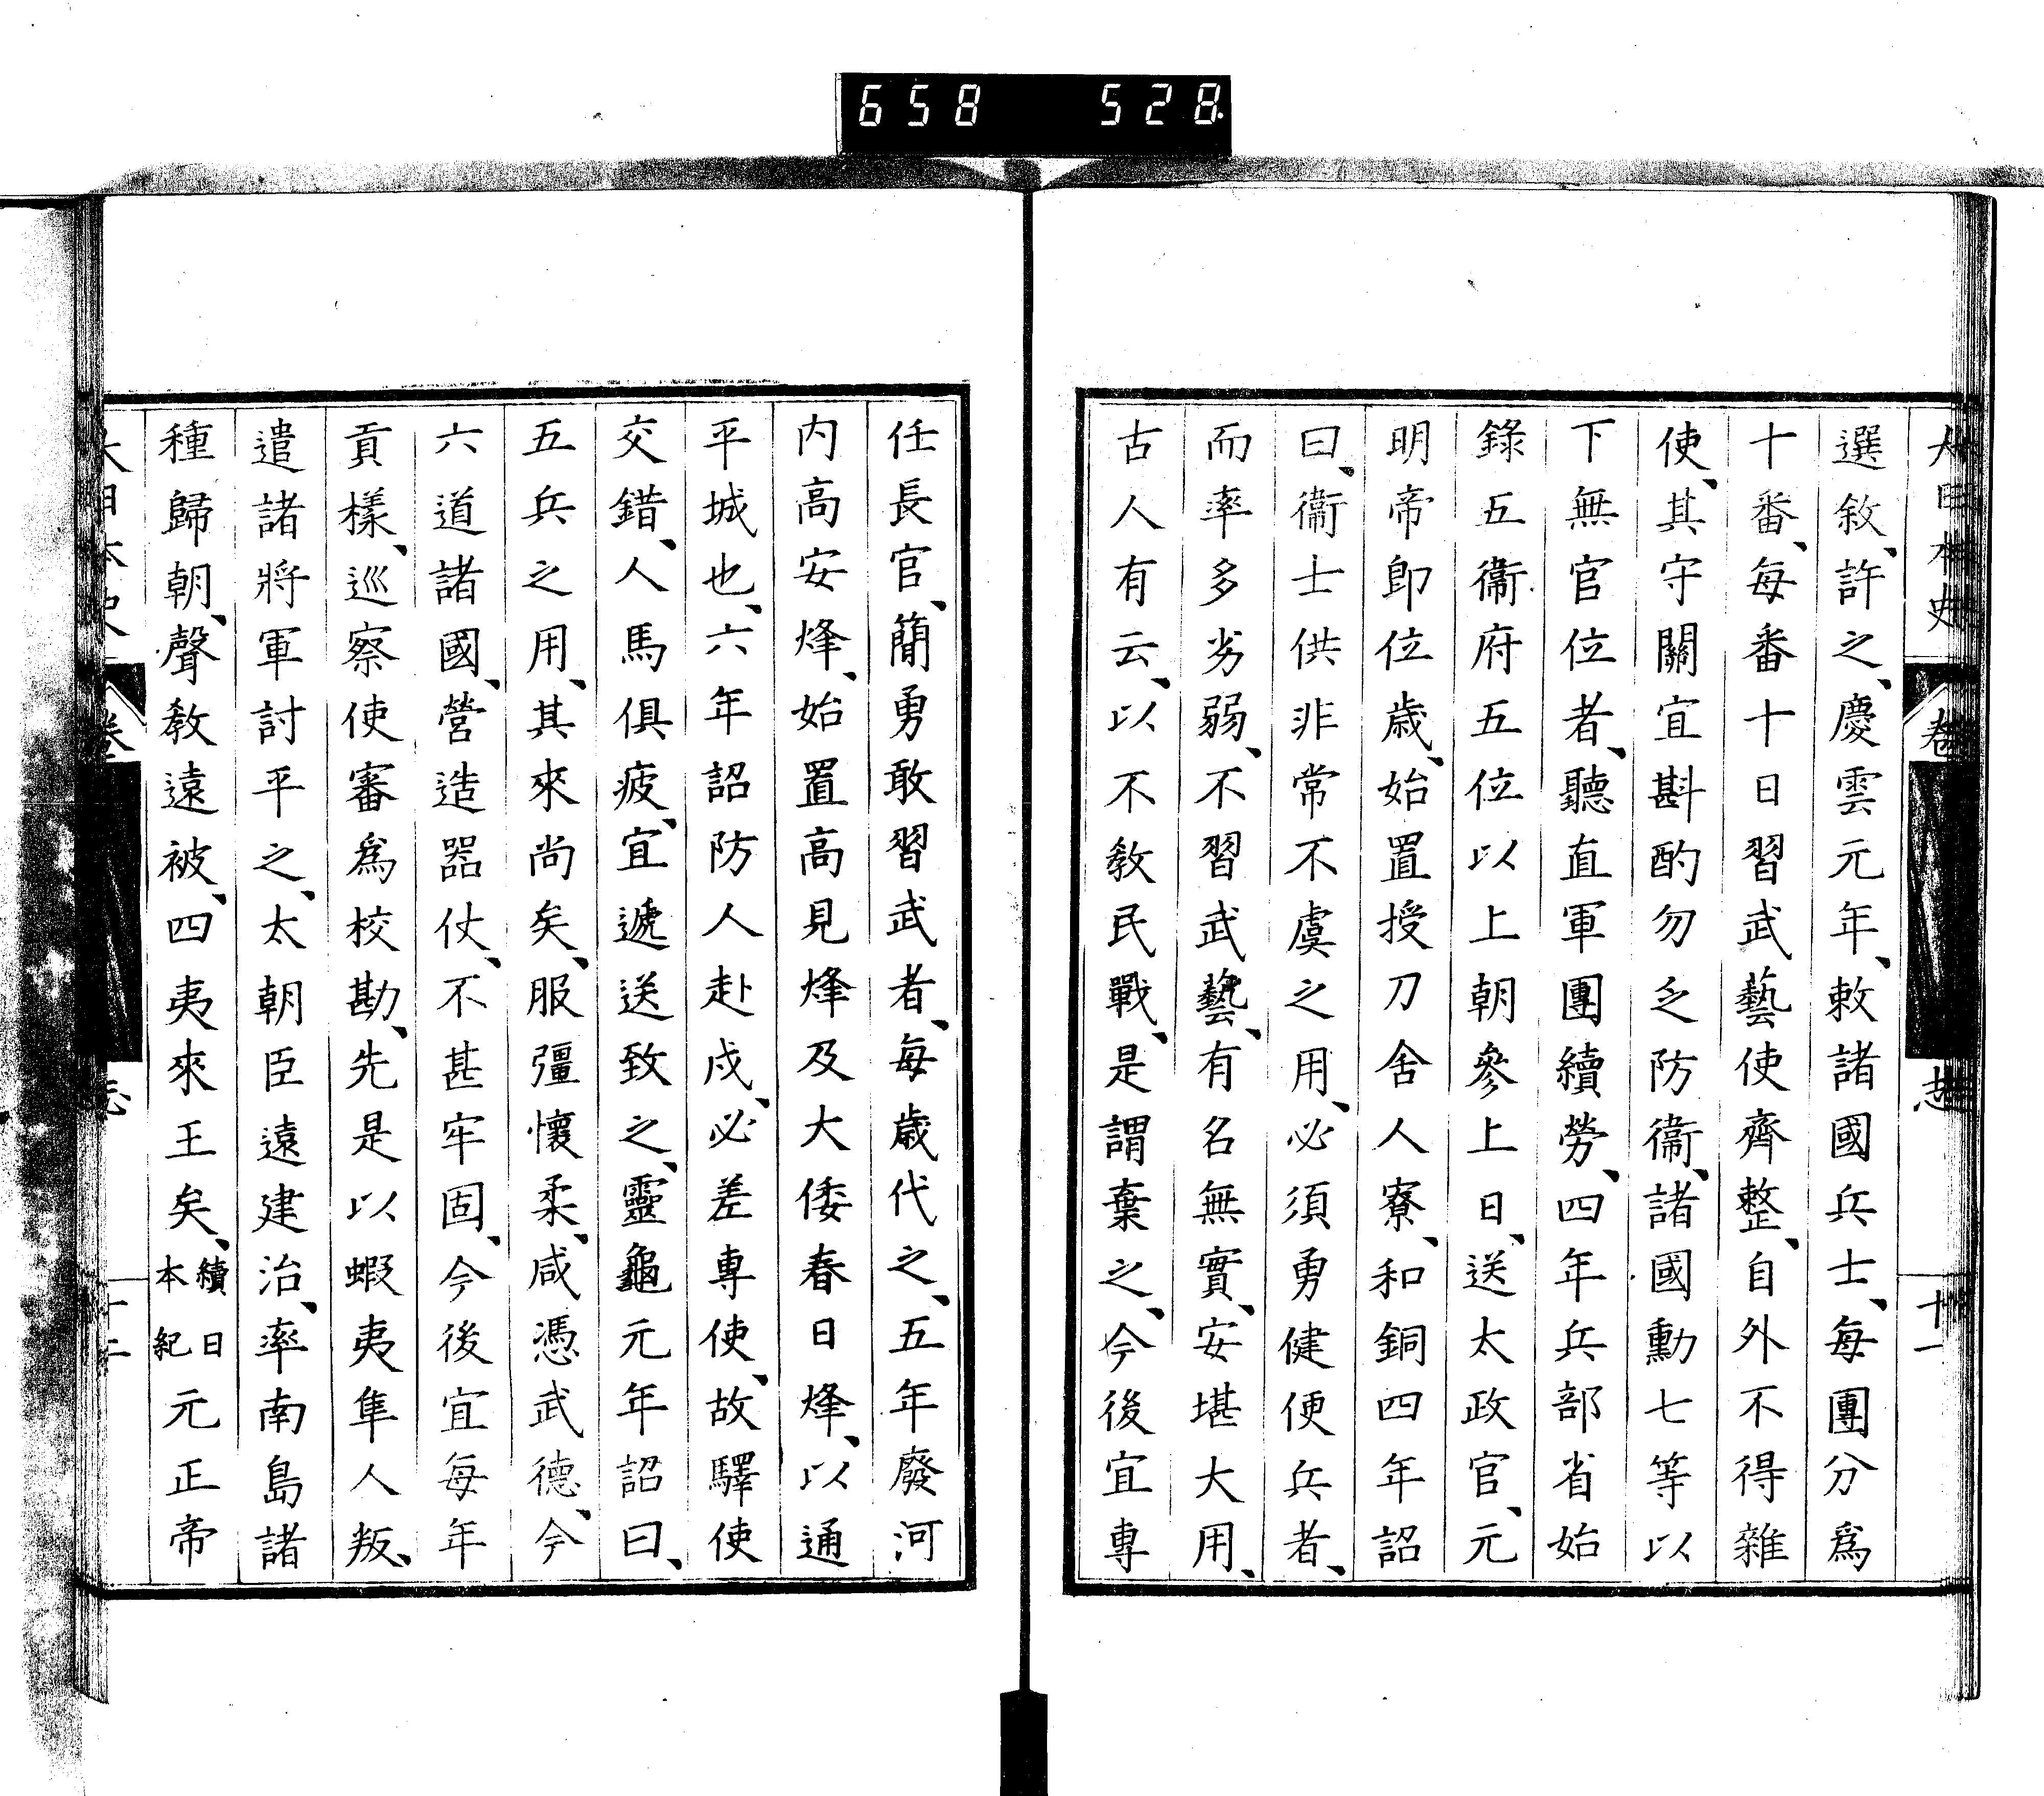 658 528
大日本史 卷 志 十一
選敘、許之、慶雲元年、敕諸國兵士、每團分爲
十番、每番十日習武藝使齊整、自外不得雜
使、其守關宜斟酌勿乏防衞、諸國勳七等以
下無官位者、聽直軍團續勞、四年兵部省始
錄五衞府五位以上朝參上日、送太政官、元
明帝卽位歲、始置授刀舍人寮、和銅四年詔
曰、衞士供非常不虞之用、必須勇健便兵者、
而率多劣弱、不習武藝、有名無實、安堪大用、
古人有云、以不敎民戰、是謂棄之、今後宜專
任長官、簡勇敢習武者、每歲代之、五年廢河
内高安烽、始置高見烽及大倭春日烽、以通
平城也、六年詔防人赴戍、必差專使、故驛使
交錯、人馬俱疲、宜遞送致之、靈龜元年詔曰、
五兵之用、其來尚矣、服彊懷柔、咸憑武德、今
六道諸國、營造器仗、不甚牢固、今後宜每年
貢樣、巡察使審爲校勘、先是以蝦夷隼人叛、
遣諸將軍討平之、太朝臣遠建治、率南島諸
種歸朝、聲敎遠被、四夷來王矣、續日本紀元正帝
大日本史 卷 志 十二